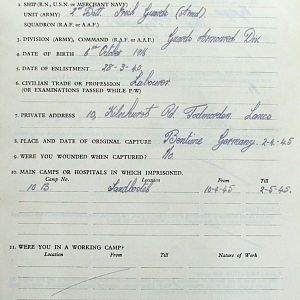 2. SHIP (R.N., U.S.N. or MERCHANT NAVY)
UNIT (ARMY) 2nd Batt. Irish Guards (Armd)
SQUADRON (R.A.F. or A.A.F.)
3. DIVISION (ARMY), COMMAND (R.A.F. or A.A.F.) Guards Armoured Div.
4. DATE OF BIRTH 6th October 1916
5. DATE OF ENLISTMENT 28-3-40
6. CIVILIAN TRADE or PROFESSION Labourer
(or EXAMINATIONS PASSED WHILE P/W)
7. PRIVATE ADDRESS 10, Kilnhurst Rd. Todmorden Lancs
8. PLACE AND DATE OF ORIGINAL CAPTURE Germany. 2-4-45
9. WERE YOU WOUNDED WHEN CAPTURED? No.
10. MAIN CAMPS OR HOSPITALS IN WHICH IMPRISONED.
Camp No. Location From Till
10 B Sandbostel 10-4-45 2-5-45
11. WERE YOU IN A WORKING CAMP?
Location From Till Nature of Work